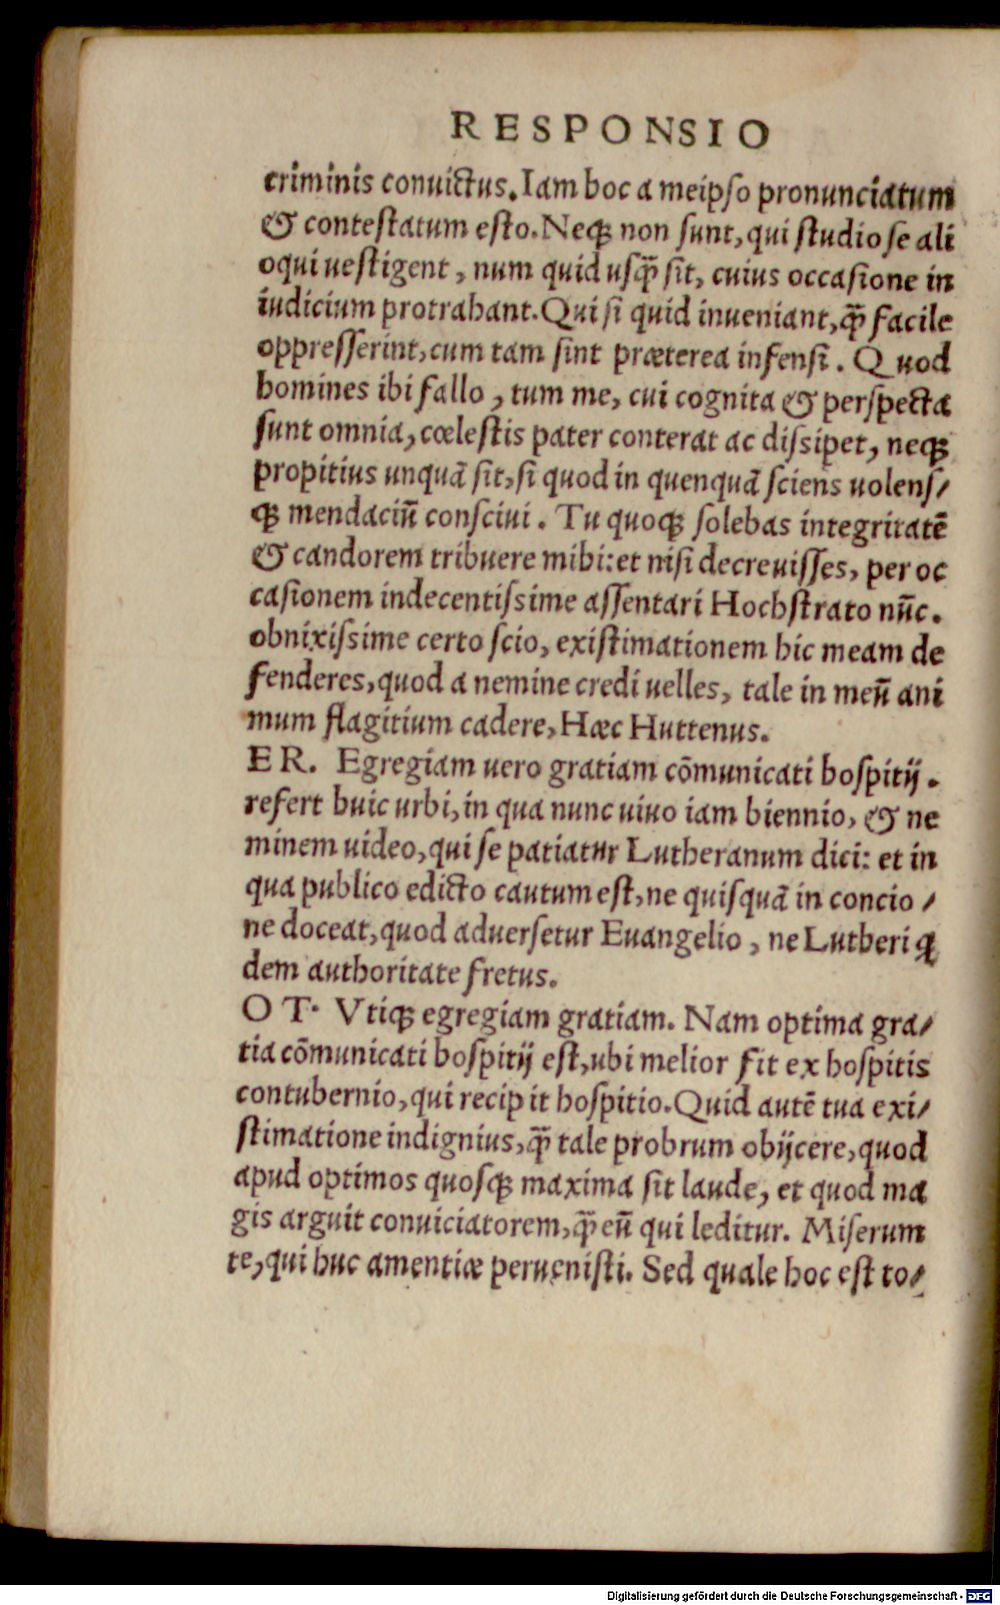 RESPONSIO
criminis conuictus. Iam hoc a meipso pronunciatum
& contestatum esto. Neqꝫ non sunt, qui studiose ali
oqui uestigent, num quid usq̃ sit, cuius occasione in
iudicium protrahant. Qui si quid inueniant, q̃ facile
oppresserint, cum tam sint præterea infensi. Quod
homines ibi fallo, tum me, cui cognita & perspecta
sunt omnia, cœlestis pater conterat ac dissipet, neqꝫ
propitius unquã sit, si quod in quenquã sciens uolens/
qꝫ mendaciũ consciui. Tu quoqꝫ solebas integritatẽ
& candorem tribuere mihi: et nisi decreuisses, per oc
casionem indecentissime assentari Hochstrato nũc.
obnixissime certo scio, existimationem hic meam de
fenderes, quod a nemine credi uelles, tale in meũ ani
mum flagitium cadere, Hæc Huttenus.
ER. Egregiam uero gratiam cõmunicati hospitij.
refert huic urbi, in qua nunc uiuo iam biennio, & ne
minem uideo, qui se patiatur Lutheranum dici: et in
qua publico edicto cautum est, ne quisquã in concio/
ne doceat, quod aduersetur Euangelio, ne Lutheri q̃
dem authoritate fretus.
OT. Vtiqꝫ egregiam gratiam. Nam optima gra/
tia cõmunicati hospitij est, ubi melior fit ex hospitis
contubernio, qui recipit hospitio. Quid autẽ tua exi/
stimatione indignius, q̃ tale probrum obijcere, quod
apud optimos quosqꝫ maxima sit laude, et quod ma
gis arguit conuiciatorem, q̃ eũ qui leditur. Miserum
te, qui huc amentiæ peruenisti. Sed quale hoc est to/
Digitalisierung gefördert durch die Deutsche Forschungsgemeinschaft - DFG